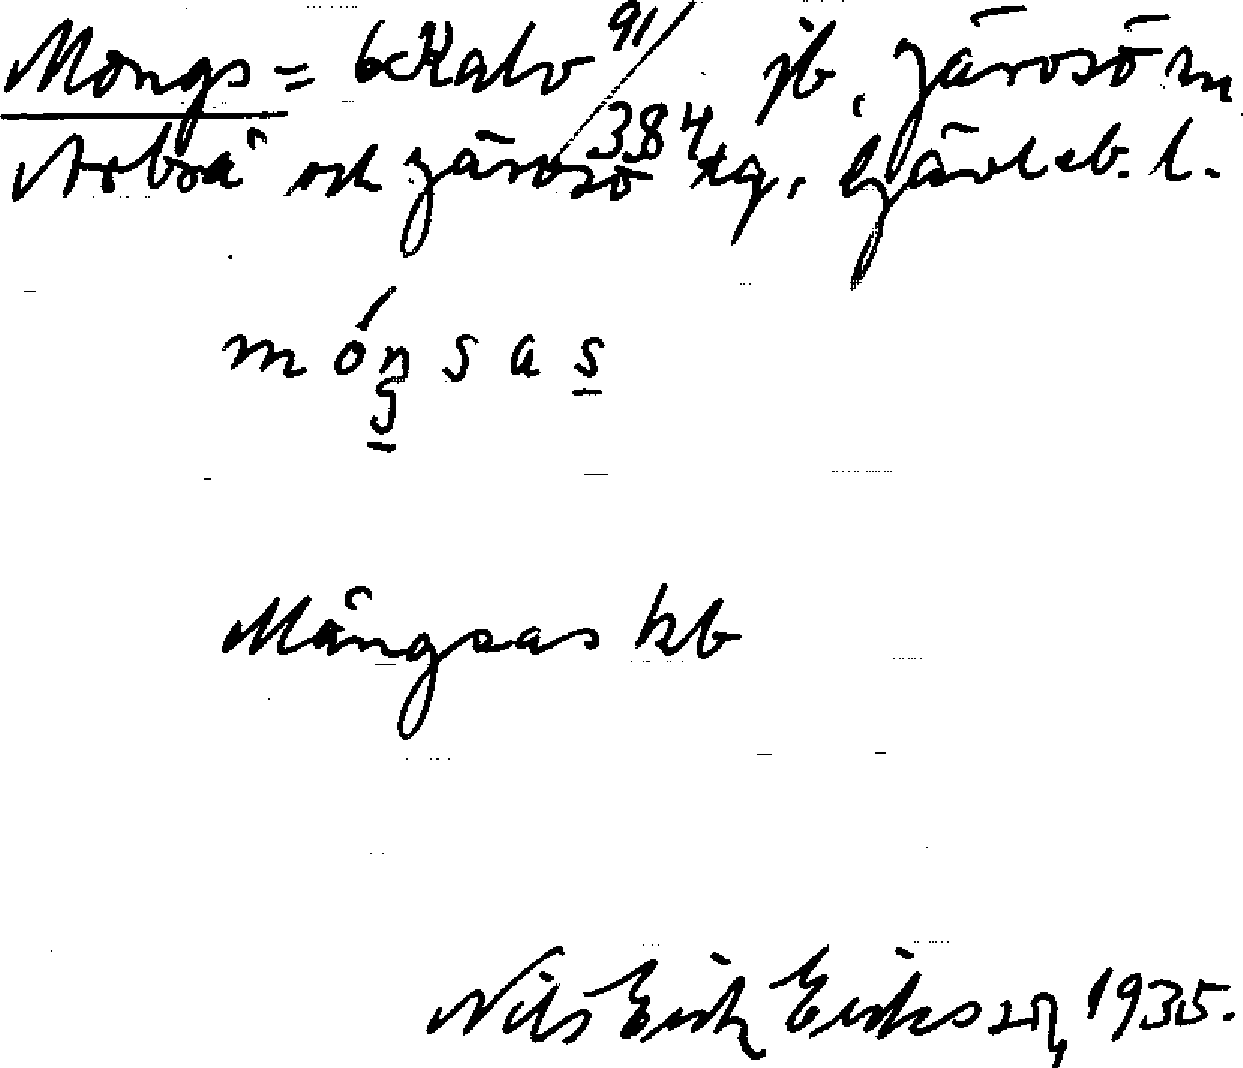 Mongs = 6 Kalv 91/384 jb, Järvsö sn
Arbrå och Järvsö tg, Gävleb. l.
móŋsas
Mångsas kb
Nils Erik Eriksson, 1935.